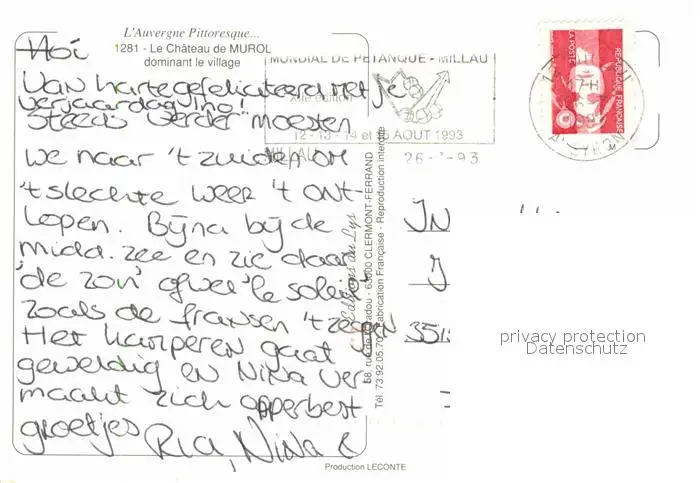 L'Auvergne Pittoresque...
1281 - Le Château de MUROL
dominant le village
Hoi
Van harte gefeliciteerd met je
verjaardag Ino!
Steeds "verder" moesten
we naar 't zuiden om
't slechte weer 't ont-
lopen. Bijna bij de
midd. zee en zie daar
'de zon' ofwel 'le soleil'
zoals de fransen 't zeggen
Het kamperen gaat
geweldig en Nina ver-
maakt zich opperbest
groetjes Ria, Nina &
MONDIAL DE PETANQUE - MILLAU
12 - 13 - 14 et 15 AOUT 1993
MILLAU
26 - - 93
LA POSTE
REPUBLIQUE FRANÇAISE
AVEYRON
63000 CLERMONT-FERRAND
Fabrication Française - Reproduction interdite
Tél. 73.92.05.70
IN
J
351
privacy protection
Datenschutz
Production LECONTE